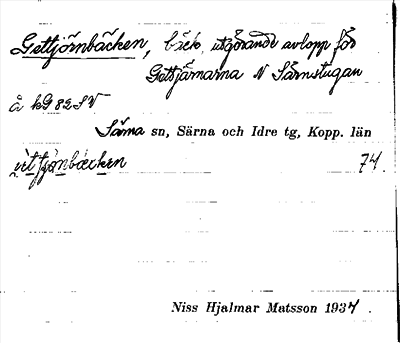 Gettjörnbäcken, bäck, utgörande avlopp för
Gettjärnarna N Särnstugan
å kG 82 SV
Särna sn, Särna och Idre tg, Kopp. län
74.
Niss Hjalmar Matsson 1937.